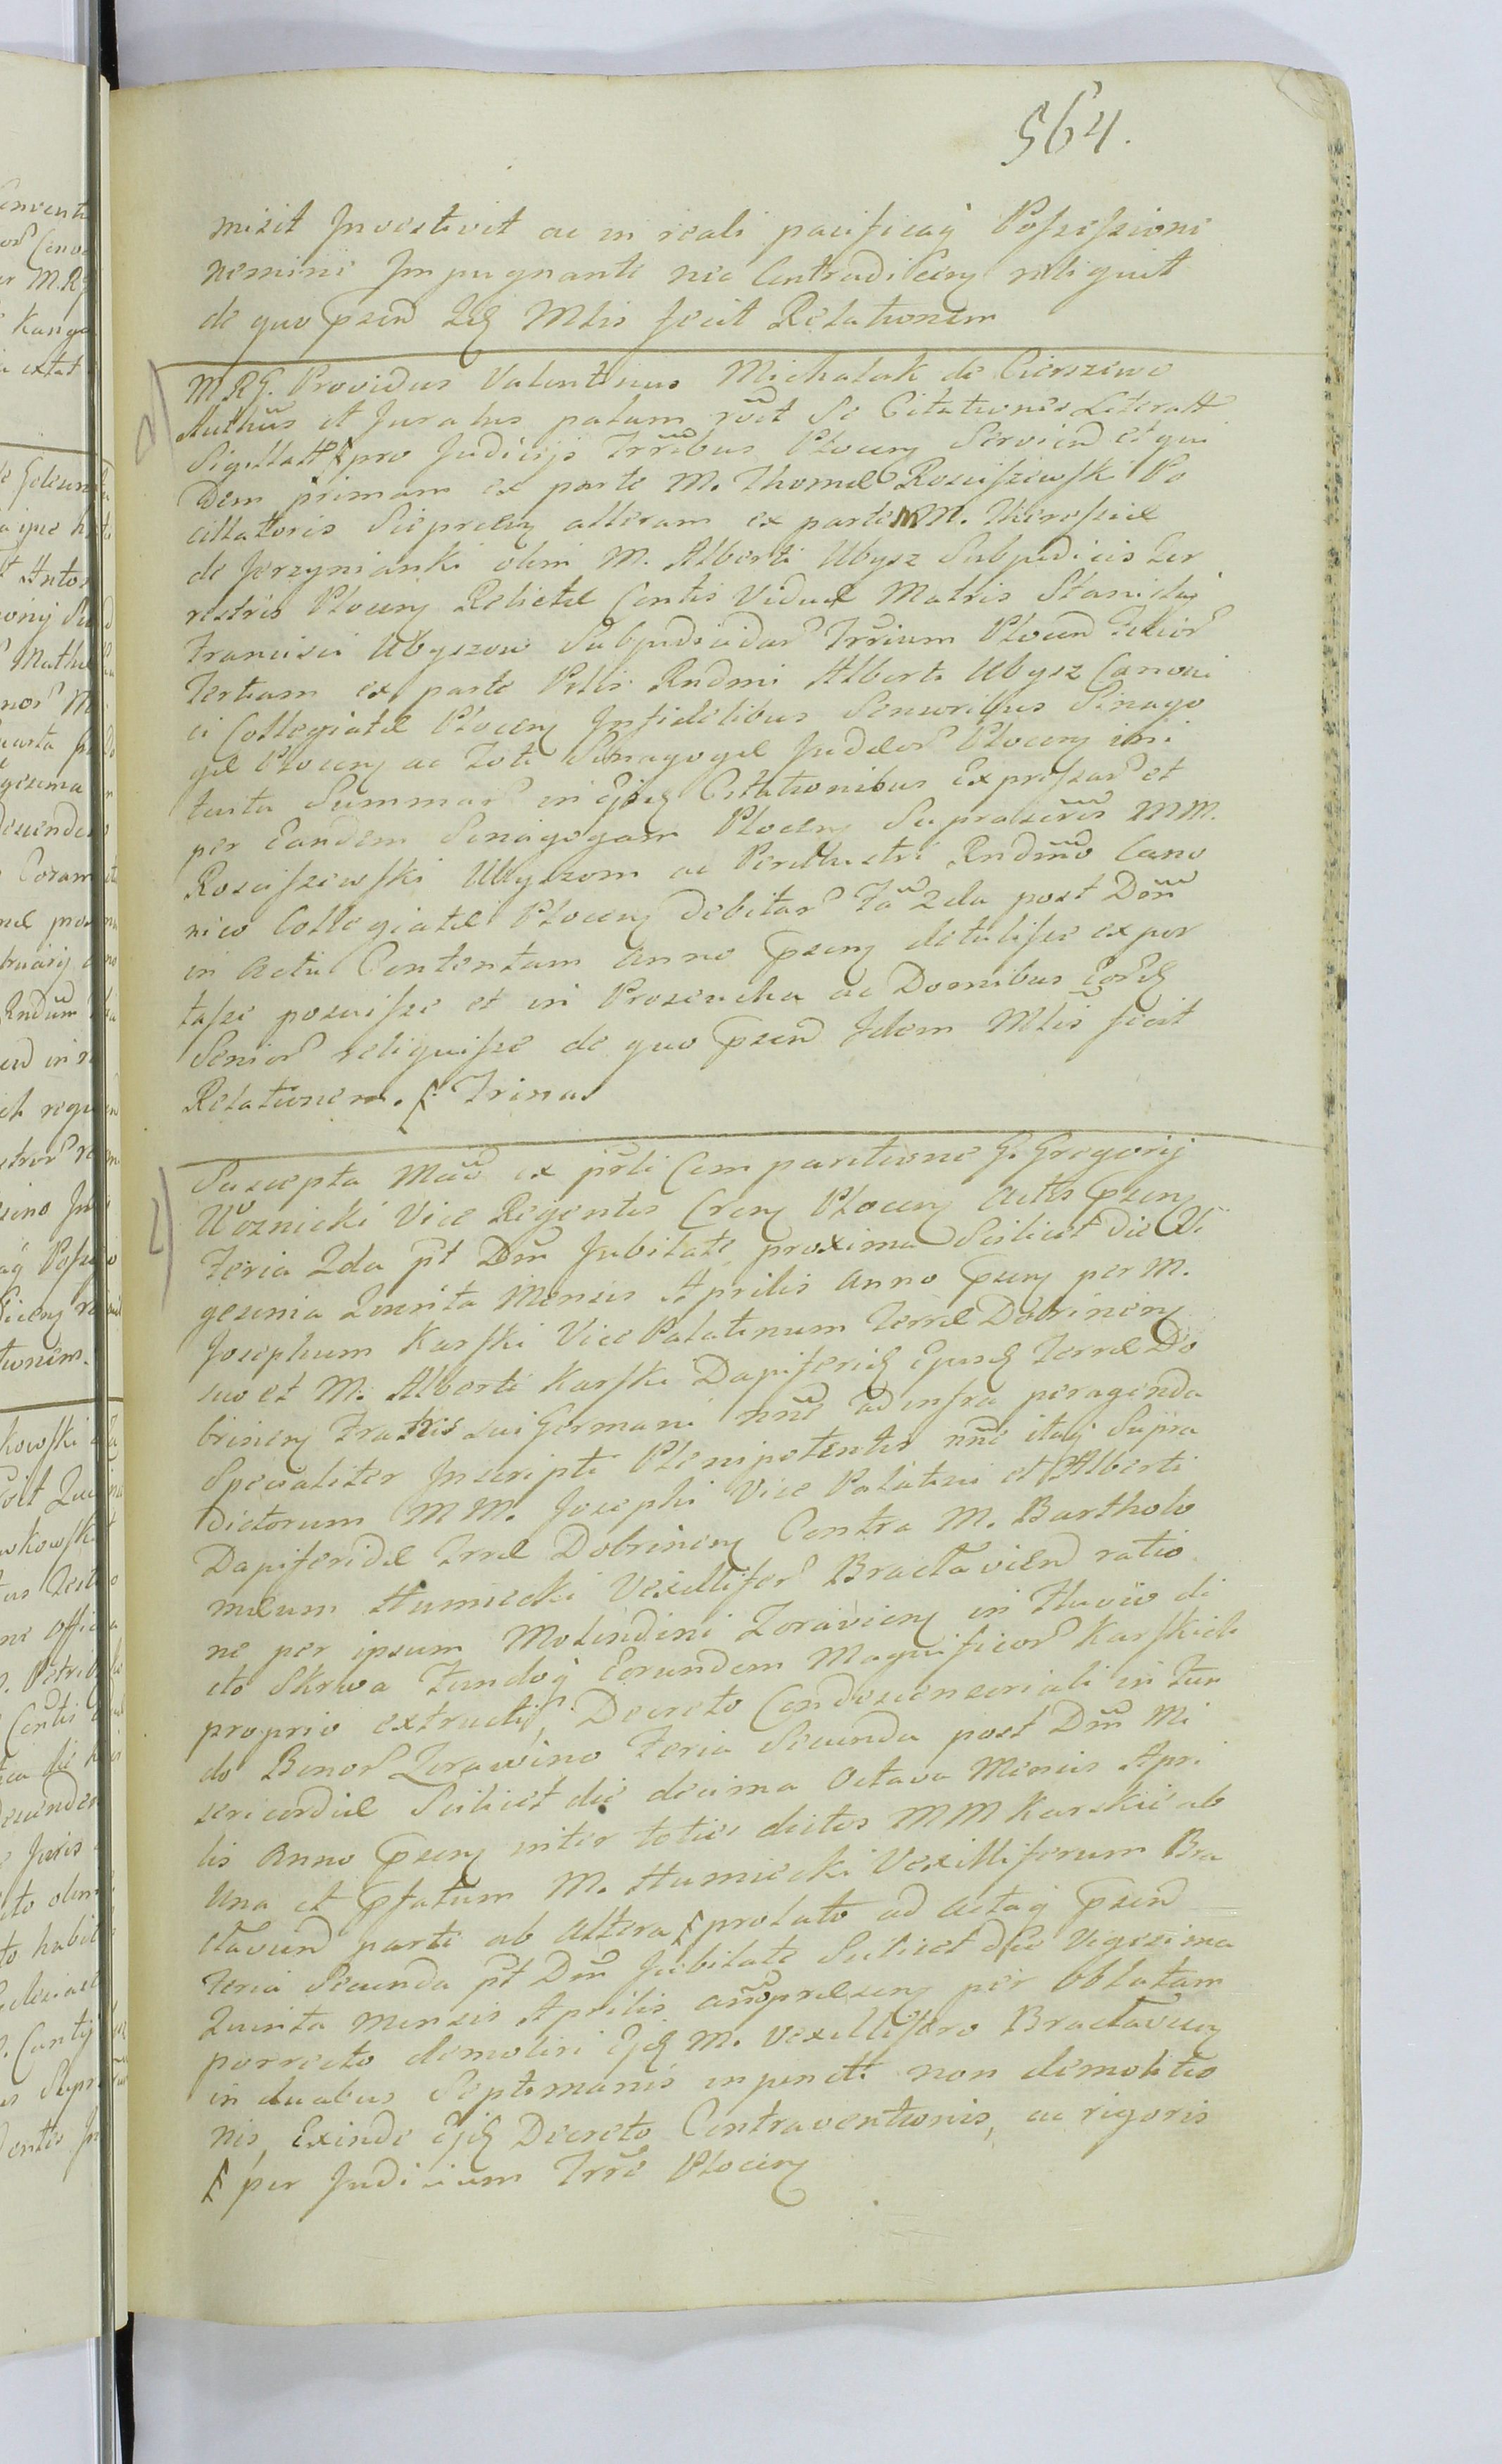 564.
misit Investivit ac in reali pacificaq Possessione
nemine Impugnante nec Contradicen reliquit
de quo psend Idq Mlis fecit Relationem
MRG. Providus Valentinus Michalak de Cierszewo
Authus et Juratus palam rvit Se Citationes Literatt
Sigillatt pro Judicijs Trribus Plocen Serviend et qui
dem primam ex parte M. Thomæ Rosciszewski Po
cillatoris Sieprcen alteram ex parte MM. Theressiæ
de Jerzynianki olim M. Alberti Ubysz Subjudicis Ter
restris Plocen Relictæ Contis Viduæ Matris Stanislai
Francisci Ubyszow Subjudicidar Trrium Plocen Filior
Tertiam ex parte Prllis Rndmi Alberti Ubysz Canoni
ci Collegiatæ Plocen Infidelibus Senioribus Sinago
gæ Plocen ac Toti Sinagogæ Judæor Plocen ini
tuitu Summar in Ejsdq Citationibus Expressar et
per Eandem Sinagogam Plocen Suprascris MM.
Rosciszewski Ubyszom ac Perillustri Rndmo Cano
nico Collegiatæ Plocen debitar Fa 2da post Dom
in actu Contentam anno psen detulisse expor
tasse posuisse et in Proseucha ac Domibus Eordq
Senior reliquisse de quo psend Idem Mlis fecit
Relationem. Trinas
Suscepta Mad ex psrli Comparitione G. Gregorij
Woznicki Vice Regentis Cren Plocen Actis psen
Feria 2da pt Dm Jubilate proxima Scilicet die Vi
gesima Quinta Mensis Aprilis anno psen per M.
Josephum Karski Vice Palatinum Terræ Dobrinen
suo et M. Alberti Karski Dapiferidq Ejusdq Terræ Do
brinen Fratris sui Germani nne ad infra peragenda
Specialiter Inscripti Plenipotentis nne itaq Supra
dictorum MM. Josephi Vice Palatini et Alberti
Dapiferidæ Trræ Dobrinen Contra M. Bartholo
mæum Humiecki Vexillifer Bractavien ratio
ne per ipsum Molendini Zoravien in Fluvio di
cto Skrwa Fundoq Eorundem Magnificor Karskich
proprio extructi, Decreto Condescensoriali in Fun
do Bonor Zorawino Feria Secunda post Dm Mi
sericordiæ Scilicet die decima Octava Mensis Apri
lis anno psen inter toties dictos MM Karskie ab
una et pfatum M. Humiecki Vexilliferum Bra
ctavien parte ab altera prolato ad actaq psend
Feria Secunda pt Dm Jubilate Scilicet die Vigesima
Quinta Mensis Aprilis anno præsen per Oblatam
porrecto demoliri Ejdq M. Vexillifero Bractavien
in duabus Septimanis injuncti non demolitio
nis, Exinde Ejdq Decreto Contraventionis, ac rigoris
per Judicium Trre Plocen